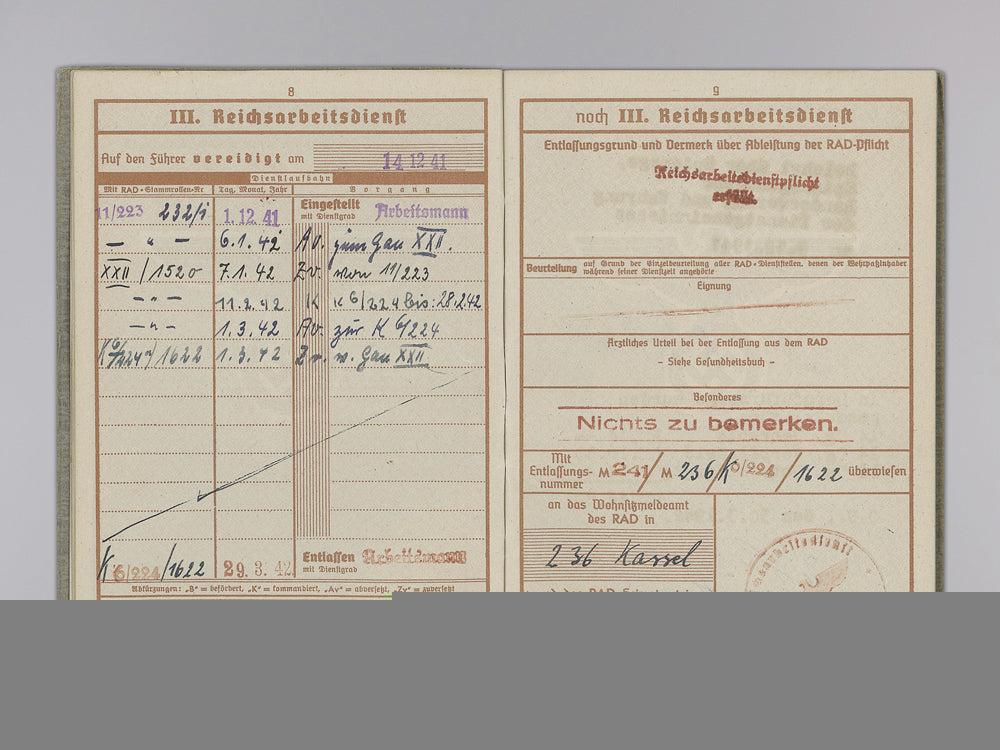 8
III. Reichsarbeitsdienst
Auf den Führer vereidigt am 14 12 41
Dienstlaufbahn
Mit RAD-Stammrollen-Nr Tag, Monat, Jahr Vorgang
11/223 232/i 1. 12. 41 Eingestellt mit Dienstgrad Arbeitsmann
— " — 6. 1. 42 Av. zum Gau XXII.
XXII / 1520 7. 1. 42 Zv. von 11/223
— " — 11. 2. 42 K K 6/224 bis: 28.2.42
— " — 1. 3. 42 Av. zur K 6/224
K 6/224 / 1622 1. 3. 42 Zv. v. Gau XXII
K 6/224 / 1622 29. 3. 42 Entlassen mit Dienstgrad Arbeitsmann
Abkürzungen: „B" = befördert, „K" = kommandiert, „Av" = abversetzt, „Zv" = zuversetzt
9
noch III. Reichsarbeitsdienst
Entlassungsgrund und Vermerk über Ableistung der RAD-Pflicht
Reichsarbeitsdienstpflicht
erfüllt.
Beurteilung auf Grund der Einzelbeurteilung aller RAD-Dienststellen, denen der Wehrpaßinhaber
während seiner Dienstzeit angehörte
Eignung
Ärztliches Urteil bei der Entlassung aus dem RAD
- Siehe Gesundheitsbuch -
Besonderes
Nichts zu bemerken.
Mit
Entlassungs- M 241 / M 236 / K 6/224 / 1622 überwiesen
nummer
an das Wohnsitzmeldeamt
des RAD in
236 Kassel